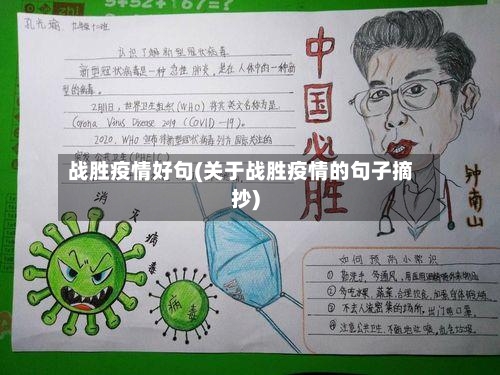 认识了解新型冠状病毒
新型冠状病毒是一种急性肺炎,是在人体中的一种新
型的病毒。
2月11日,世界卫生组织(WHO)将其英文名称为是
Corona Virus Disease 2019 (COVID-19)。
2020, WHO
中国必胜
战胜疫情好句(关于战胜疫情的句子摘
抄)
钟南山
消灭病毒
病毒
如何预防小常识
① 勤洗手,多通风,
② 多吃水果、蔬菜,合理饮食,加强身体锻炼
③ 不去人流密集的场所,出门戴口罩。
④ 注意公共卫生,不随地吐痰,